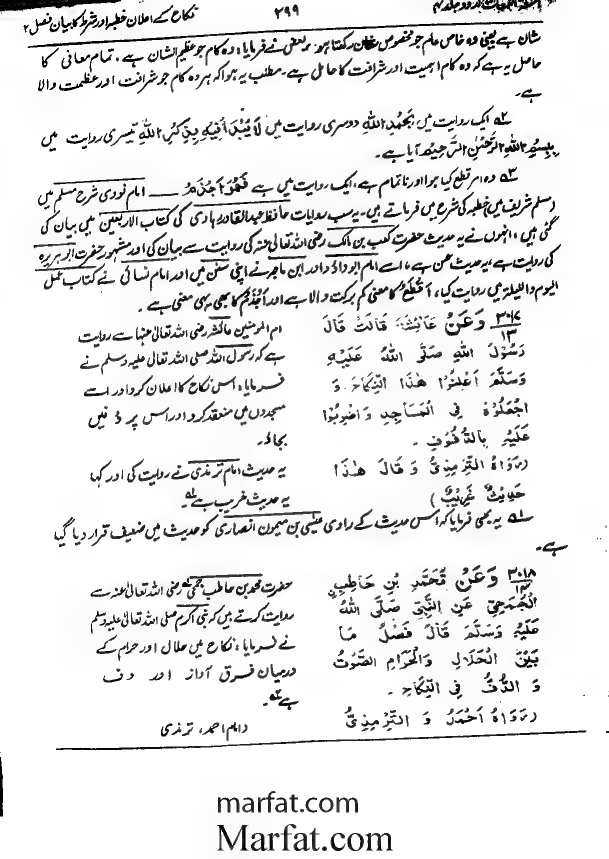 نکاح کے اعلان خطبہ اور شرط کا بیان فصل ۲
۲۹۹
شان ہے یعنی وہ خاص عام جو مخصوص شان رکھتا ہو۔ بعض نے فرمایا: وہ کام جو عظیم الشان ہے، تمام معانی کا
حاصل یہ ہے کہ وہ کام اہمیت اور شرافت کا حامل ہے۔ مطلب یہ ہوا کہ ہر وہ کام جو شرافت اور عظمت والا
ہے۔
۲ ایک روایت میں بِحَمْدِ اللّٰهِ دوسری روایت میں لَا يُبْدَأُ فِيْهِ بِذِكْرِ اللّٰهِ تیسری روایت میں
بِبِسْمِ اللّٰهِ الرَّحْمٰنِ الرَّحِيْمِ آیا ہے۔
۳ وہ امر قطع کیا ہوا اور ناتمام ہے، ایک روایت میں ہے فَهُوَ اَجْذَمُ ـــ امام نووی شرح مسلم میں
مسلم شریف میں خطبہ کی شرح میں فرماتے ہیں، یہ سب روایات حافظ عبدالقادر ہاوی کی کتاب الاربعین میں بیان کی
گئی ہیں، انہوں نے یہ حدیث حضرت کعب بن مالک رضی اللہ تعالیٰ عنہ کی روایت سے بیان کی اور مشہور حضرت ابوہریرہ
کی روایت ہے، یہ حدیث حسن ہے، اسے امام ابو داؤد اور ابن ماجہ نے اپنی سنن میں اور امام نسائی نے کتاب عمل
الیوم واللیلہ میں روایت کیا، اَقْطَعُ کا معنی کم برکت والا ہے اور اَجْذَمُ کا بھی یہی معنی ہے۔
۳۰۱۷
۱۳
وَعَنْ عَائِشَةَ قَالَتْ قَالَ
رَسُوْلُ اللّٰهِ صَلَّى اللّٰهُ عَلَيْهِ
وَسَلَّمَ اَعْلِنُوْا هٰذَا النِّكَاحَ وَ
اجْعَلُوْهُ فِى الْمَسَاجِدِ وَاضْرِبُوْا
عَلَيْهِ بِالدُّفُوْفِ۔
(رَوَاهُ التِّرْمِذِىُّ وَقَالَ هٰذَا
حَدِيْثٌ غَرِيْبٌ)
ام المومنین عائشہ رضی اللہ تعالیٰ عنہا سے روایت
ہے کہ رسول اللہ صلی اللہ تعالیٰ علیہ وسلم نے
فرمایا: اس نکاح کا اعلان کرو اور اسے
مسجدوں میں منعقد کرو اور اس پر دفیں
بجاؤ۔
یہ حدیث امام ترمذی نے روایت کی اور کہا
یہ حدیث غریب ہے۱
۱ یہ بھی فرمایا کہ اس حدیث کے راوی عیسیٰ بن میمون انصاری کو حدیث میں ضعیف قرار دیا گیا
ہے۔
۳۰۱۸
۱۴
وَعَنْ مُحَمَّدِ بْنِ حَاطِبٍ
الْجُمَحِىِّ عَنِ النَّبِىِّ صَلَّى اللّٰهُ
عَلَيْهِ وَسَلَّمَ قَالَ فَصْلُ مَا
بَيْنَ الْحَلَالِ وَالْحَرَامِ الصَّوْتُ
وَ الدُّفُّ فِى النِّكَاحِ۔
(رَوَاهُ اَحْمَدُ وَ التِّرْمِذِىُّ
حضرت محمد بن حاطب جمحی رضی اللہ تعالیٰ عنہ سے
روایت کرتے ہیں کہ نبی اکرم صلی اللہ تعالیٰ علیہ وسلم
نے فرمایا: نکاح میں حلال اور حرام کے
درمیان فرق آواز اور دف
ہے۲
(امام احمد، ترمذی
marfat.com
Marfat.com